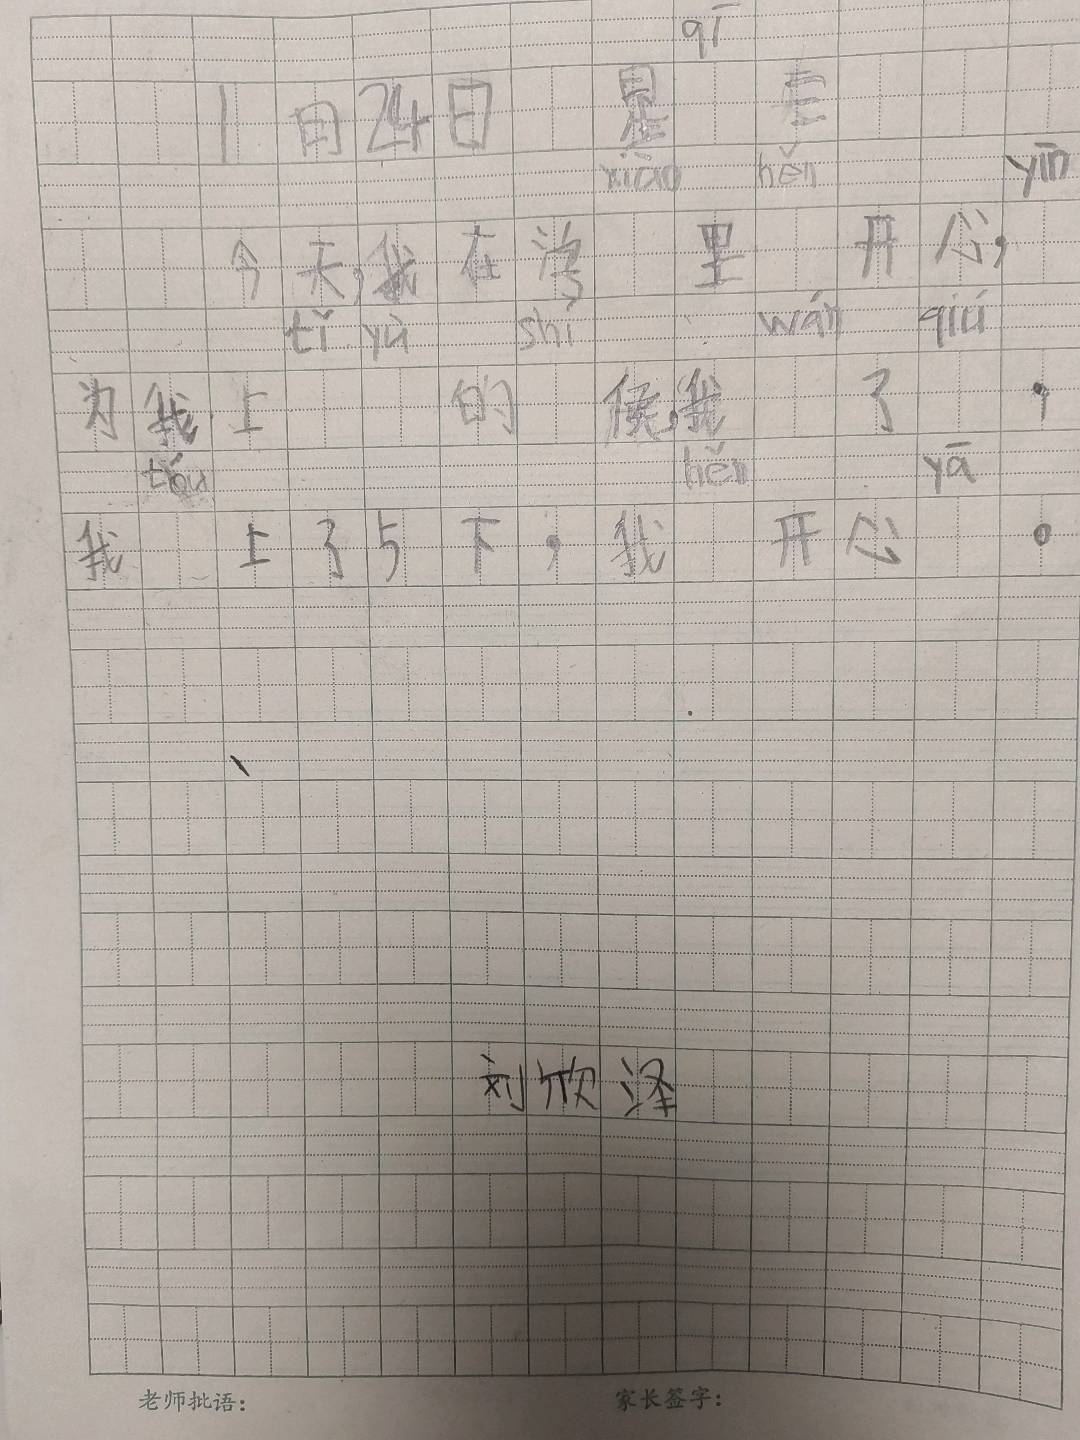 qī
1月24日 星 三
xiào hěn yīn
今天,我在学 里 开心,
tǐ yù shí wán qiú
为我上 的 候,我 了 ,
tóu hěn yā
我 上了5下,我 开心 。
刘欣泽
老师批语: 家长签字: